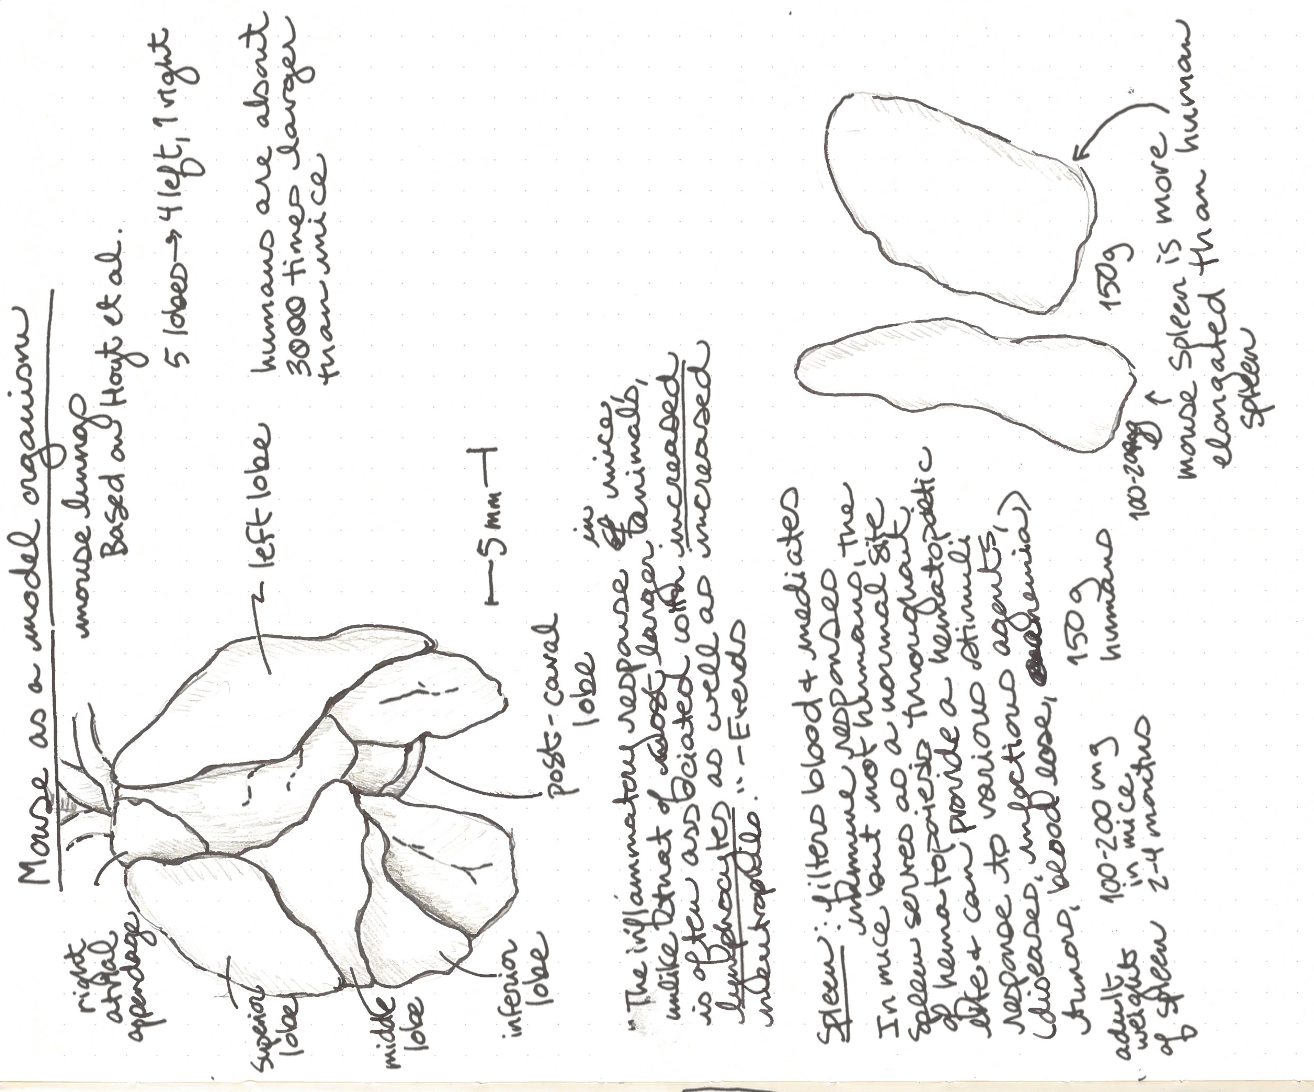 Mouse as a model organism
mouse lungs
Based on Hoyt et al.
5 lobes → 4 left, 1 right
humans are about
3000 times larger
than mice
left lobe
5 mm
right
atrial
appendage
superior
lobe
middle
lobe
inferior
lobe
post-caval
lobe
in
"The inflammatory response of mice,
unlike that of most larger animals,
is often associated with increased
lymphocytes as well as increased
neutrophils." -Everds
Spleen: filters blood & mediates
immune responses
In mice but not humans, the
spleen serves as a normal site
of hematopoiesis throughout
life & can provide a hematopoetic
response to various stimuli
(diseases, infectious agents,
tumors, blood lose, anemia)
adult
weights
of spleen
100-200 mg
in mice
2-4 months
150g
humans
100-200mg
150g
mouse spleen is more
elongated than human
spleen